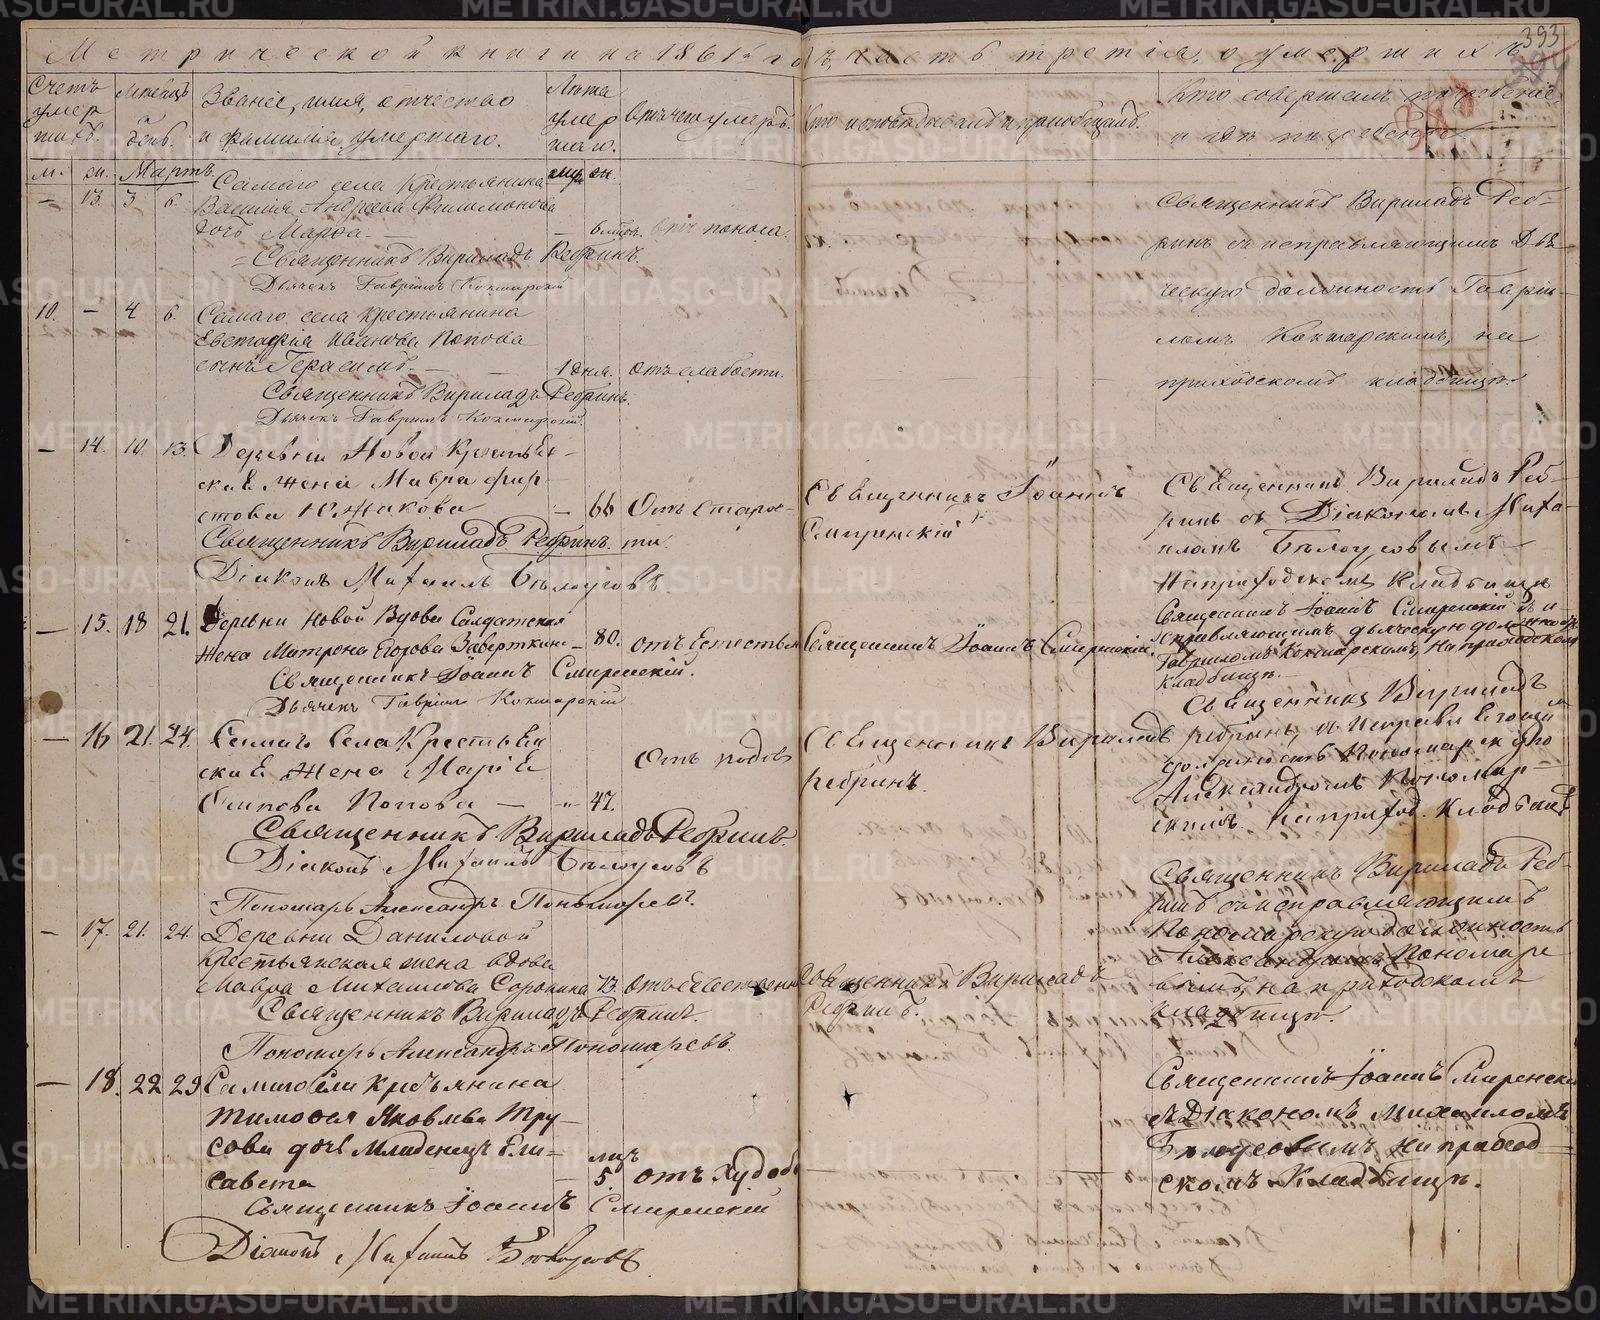 Метрической книги на 1861й годъ, часть третія, о умершихъ
393
Счетъ умершихъ.
Мѣсяцъ и день.
Званіе, имя, отчество
и фамилія умершаго.
Лѣта умершаго.
Отъ чего умеръ.
Кто исповѣдывалъ и пріобщалъ.
Кто совершалъ погребеніе
и гдѣ погребены.
м. ж. Мартъ муж. жн.
— 13. 3 6. Самаго села Крестьянина
Василія Андреева Филимонова
дочь Марѳа. — — 6 мѣс. отъ поноса.
Священникъ Вириладъ Ребринъ.
Дьячекъ Гавріилъ Кокшарскій
Священникъ Вириладъ Реб-
ринъ съ исправляющимъ Дья-
ческую должность Гаврі-
ломъ Кокшарскимъ, на
приходскомъ кладбищѣ.
10. — 4 6. Самаго села крестьянина
Евстафія Иванова Попова
сынъ Герасимъ. — — 1 дня. отъ слабости.
Священникъ Вириладъ Ребринъ.
Дьячекъ Гавріилъ Кокшарскій.
— 14. 10. 13. Деревни Новой Крестьян-
ская Жена Мавра Фир-
стова Южакова — 66 Отъ старос-
ти.
Священникъ Вириладъ Ребринъ.
Діаконъ Михаилъ Бѣлоусовъ.
Священникъ Іоаннъ
Смиренскій
Священникъ Вириладъ Реб-
ринъ съ Діакономъ Миха-
иломъ Бѣлоусовымъ
На приходскомъ Кладбищѣ
— 15. 18 21. Деревни Новой Вдова Солдатская
жена Матрона Егорова Заверткина — 80. отъ Естествен
Священникъ Іоаннъ Смиренскій.
Дьячекъ Гавріилъ Кокшарскій
Священникъ Іоаннъ Смиренскій.
Священникъ Іоаннъ Смиренскій съ и-
справляющимъ дьяческую должность
Гавриломъ Кокшарскимъ, на приходскомъ
кладбищѣ.
— 16 21. 24. Самаго Села Крестьян
ская Жена Марія
Осипова Попова — 47. Отъ родовъ
Священникъ Вириладъ Ребринъ.
Діаконъ Михаилъ Бѣлоусовъ
Пономарь Александръ Пономаревъ.
Священникъ Вириладъ
Ребринъ.
Священникъ Вириладъ
Ребринъ, съ Исправляющимъ
должность Пономарскую
Александромъ Пономар-
скимъ. На приход. Кладбищѣ
— 17. 21. 24. Деревни Даниловой
Крестьянская жена вдова
Мавра Михаилова Сорокина 73 отъ естествен
Священникъ Вириладъ Ребринъ.
Пономарь Александръ Пономаревъ.
Священникъ Вириладъ
Ребринъ.
Священникъ Вириладъ Реб-
ринъ съ исправляющимъ
Пономарскую должность
Александромъ Пономаре
вымъ, на приходскомъ
кладбищѣ.
— 18. 22 23 Самаго села Крестьянина
Тимофея Яковлева Тру-
сова дочь младенецъ Ели-
савета мѣс. — 5. отъ худобы
Священникъ Іоаннъ Смиренскій
Діаконъ Михаилъ Бѣлоусовъ
Священникъ Іоаннъ Смиренскій
съ Діакономъ Михаиломъ
Бѣлоусовымъ, на приход-
скомъ Кладбищѣ.
METRIKI.GASO-URAL.RU